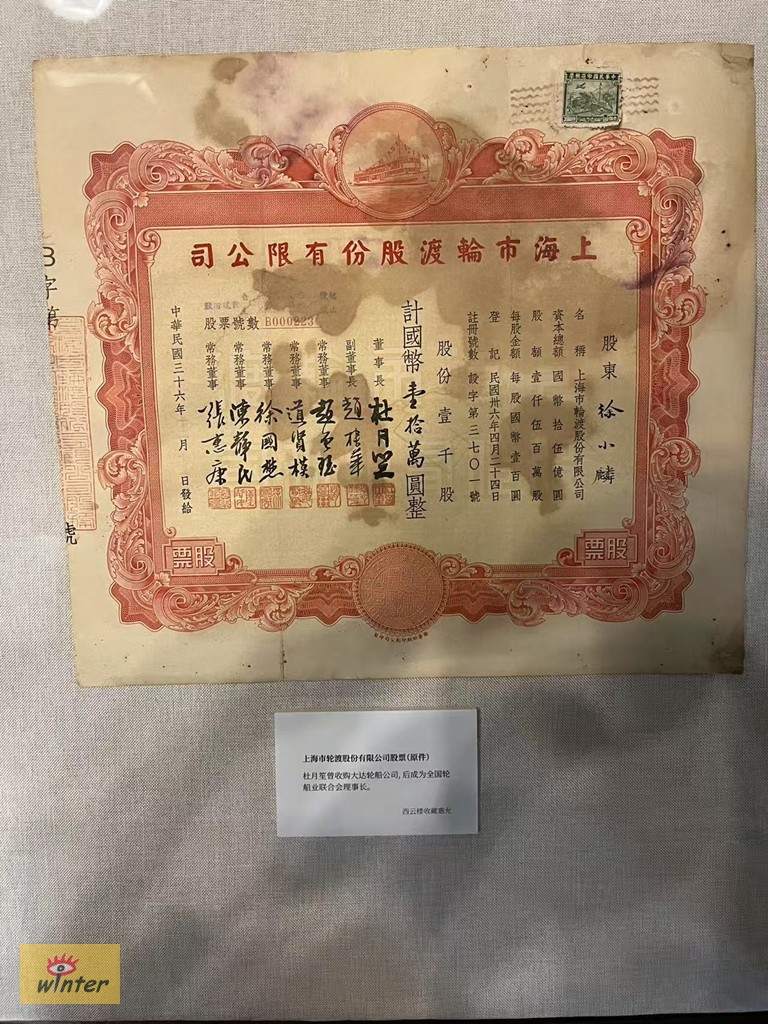 中華民國印花稅票
上海市輪渡股份有限公司
股東 徐小麟
名稱 上海市輪渡股份有限公司
資本總額 國幣拾伍億圓
股額 壹仟伍百萬股
每股金額 每股國幣壹百圓
登記 民國卅六年四月二十四日
註冊號數 設字第三七〇一號
股份壹千股
計國幣壹拾萬圓整
董事長 杜月笙
副董事長
常務董事
常務董事
常務董事 徐國懋
常務董事 陳靜民
常務董事 張惠康
股票號數 B000223
中華民國三十六年 月 日發給
B字第
號
股票
股票
上海市轮渡股份有限公司股票(原件)
杜月笙曾收购大达轮船公司,后成为全国轮
船业联合会理事长。
西云楼收藏惠允
winter